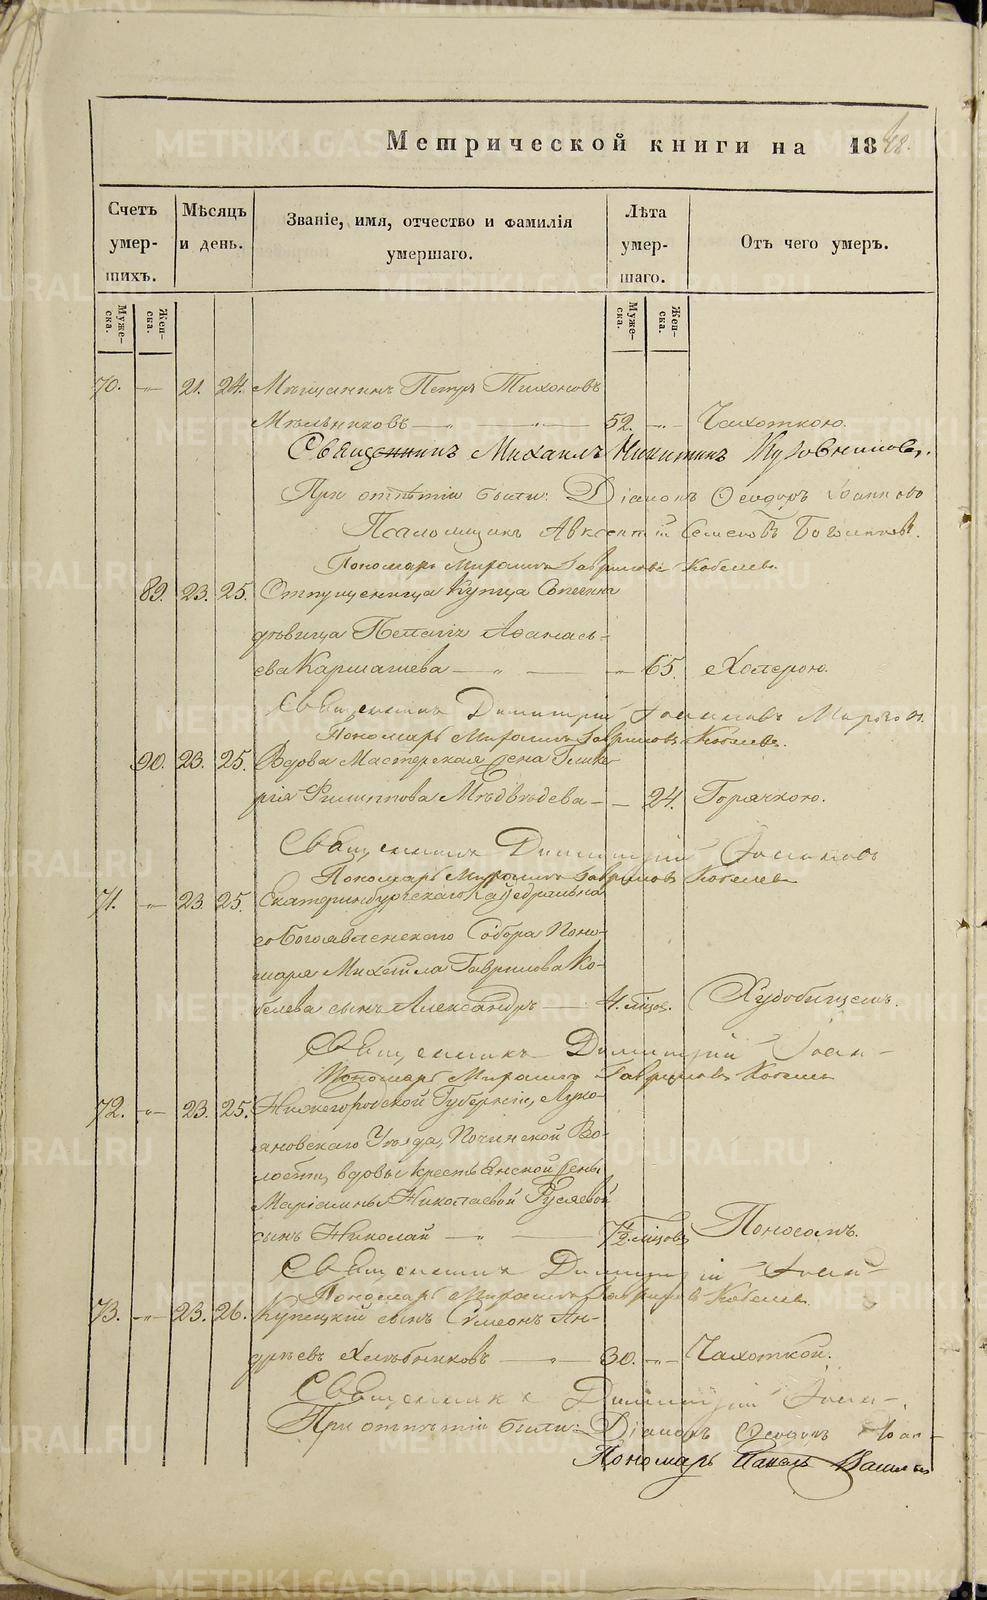 Метрической книги на 1848.
Счетъ умершихъ.
Мѣсяцъ и день.
Званіе, имя, отчество и фамилія умершаго.
Лѣта умершаго.
Отъ чего умеръ.
Мужеска.
Женска.
Мужеска.
Женска.
70. —„— 21. 24. Мѣщанинъ Петръ Тихоновъ
Мѣльниковъ —„— 52. —„— Чахоткою.
Священникъ Михаилъ Никитинъ
При отпѣтіи были: Діаконъ Ѳеодоръ
Псаломщикъ Авксентій Семеновъ
Пономарь Гавриловъ Кобелевъ
89. 23. 25. Отпущеница Купца
дѣвица Аѳанась-
ева Кармашева —„— —„— 65. Холерою.
Священникъ Димитрій Іоанновъ
Пономарь Гавриловъ Кобелевъ.
90. 23. 25. Вдова Мастерская жена Глике-
рія Филиппова Мѣдвѣдева — — 24. Горячкою.
Священникъ Димитрій Іоанновъ
Пономарь Гавриловъ Кобелевъ
71. —„— 23. 25. Екатеринбургскаго Каѳедральна-
го Богоявленскаго Собора Поно-
маря Михаила Гаврилова Ко-
белева сынъ Александръ — 4. мѣсяц.
Священникъ Димитрій Іоан-
Пономарь Гавриловъ Кобелев
72. —„— 23. 25. Нижегородской Губерніи, Луко-
яновскаго Уѣзда, Починской Во-
лости, вдовы крестьянской жены
Маріамны Николаевой
сынъ Николай —„— 7½ мѣсяцовъ Поносомъ.
Священникъ Димитрій Іоан-
Пономарь Гавриловъ Кобелев
73. —„— 23. 26. Купецкій сынъ Симеонъ Ан-
дрѣевъ Хлѣбниковъ —„— 30. —„— Чахоткой.
Священникъ Димитрій Іоан-
При отпѣтіи были: Діаконъ Ѳеодоръ Іоан-
Пономарь Павелъ
METRIKI.GASO-URAL.RU